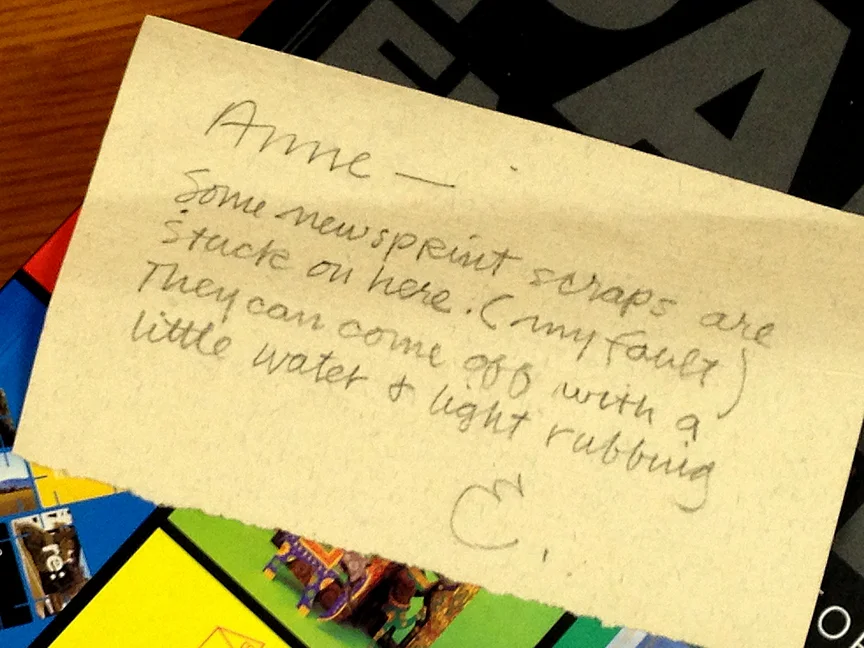 Anne —
Some newsprint scraps are
stuck on here. (my fault)
They can come off with a
little water & light rubbing
E.
re: